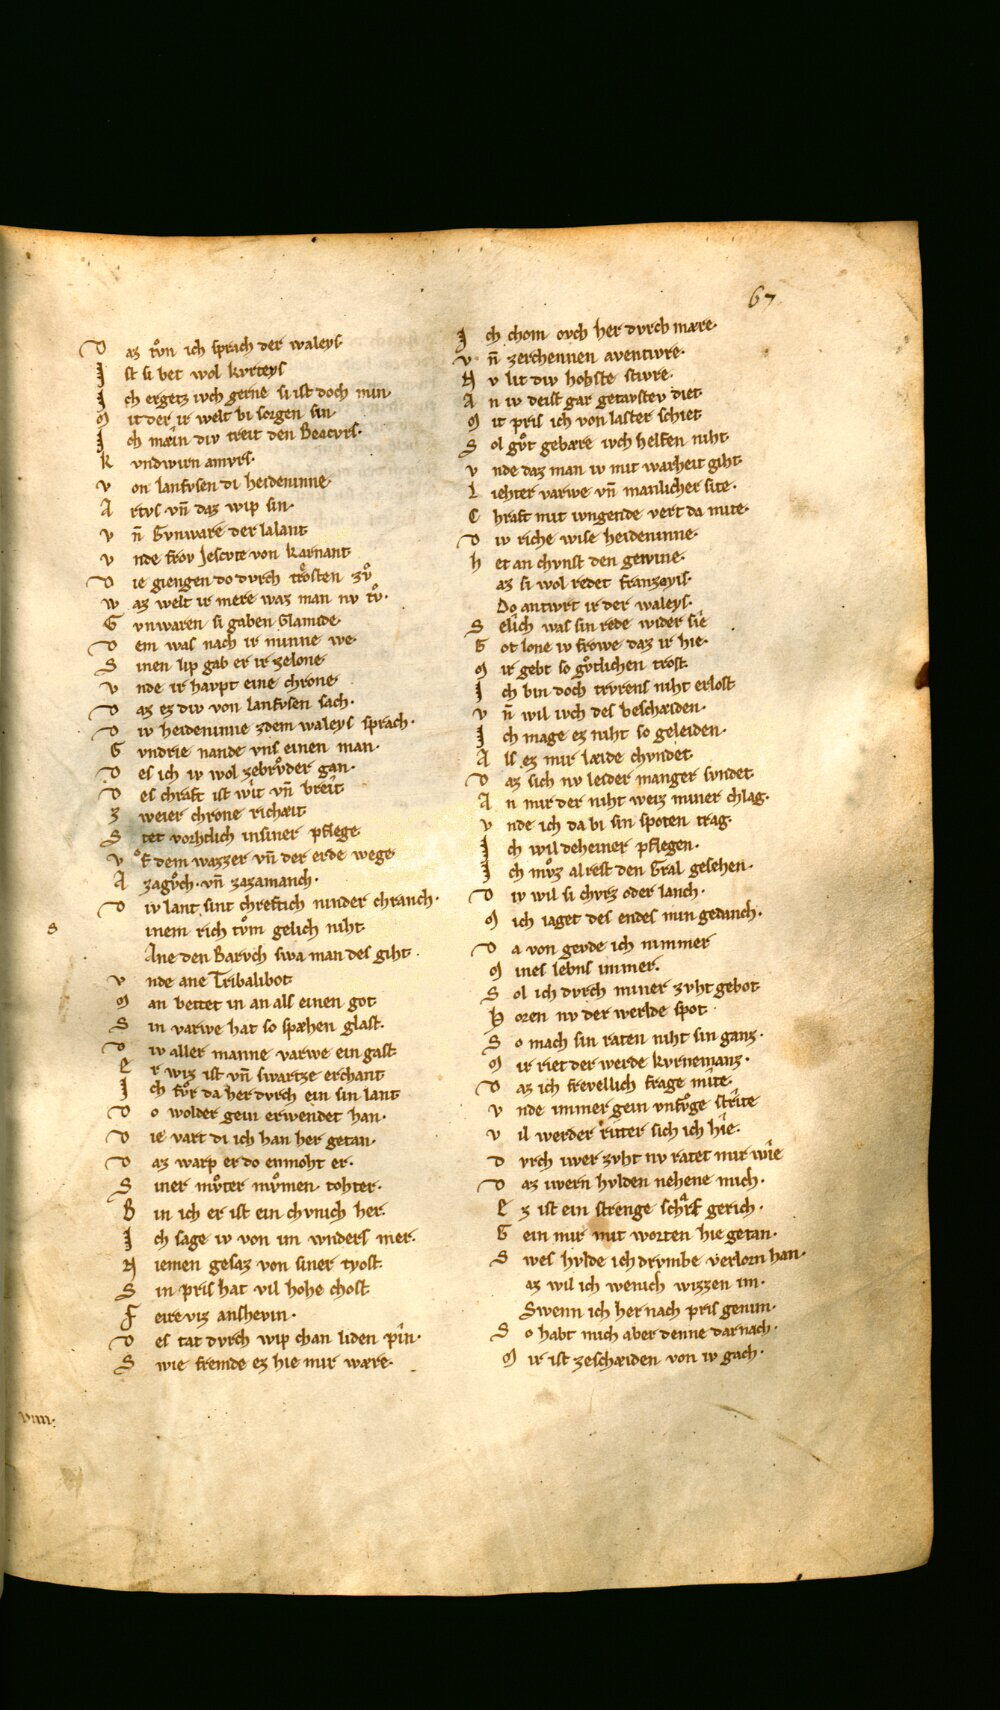 67
D az tvͦn ich sprach der waleys·
I st si bet wol kvrteys
I ch ergetz iuch gerne si ist doch min
M it der ir welt bi sorgen sin·
I ch mæin div treit den Beacvrs·
K vndwirn amvrs·
V on lanfvsen di heideninne·
A rtvs vn̄ daz wip sin·
V n̄ Gvnware der lalant
V nde frov Jescvte von karnant
D ie giengen do dvrch trͦosten zvͦ
W az welt ir mere waz man nv tvͦ·
G vnwaren si gaben Glamide·
D em was nach ir minne we·
S inen lip gab er ir zelone
V nde ir havpt eine chrone
D az ez div von lanfvsen sach·
D iv heideninne zdem waleys sprach·
G vndrie nande vns einen man·
D es ich iv wol zebrvͦder gan·
D es chraft ist wit vn̄ breit
Z weier chrone richæit
S tet vorhtlich insiner pflege
V ͦf dem wazzer vn̄ der erde wege
A zagvͦch· vn̄ zazamanch·
D iv lant sint chreftich ninder chranch·
s
inem rich tvͦm gelich niht
Ane den Barvch swa man des giht·
V nde ane Tribalibot
M an bettet in an als einen got
S in varwe hat so spæhen glast·
D iv aller manne varwe ein gast
E r wiz ist vn̄ swartze erchant
I ch fvͦr da her dvrch ein sin lant
D o wolder gein erwendet han·
D ie vart di ich han her getan·
D az warp er do enmoht er·
S iner mvͦter mvͦmen· tohter·
B in ich er ist ein chvnich her·
I ch sage iv von im wnders mer·
N iemen gesaz von siner tyost·
S in pris hat vil hohe chost
F eireviz anshevin·
D es tat dvrch wip chan liden pin·
S wie fremde ez hie mir wære·
viiii·
I ch chom ovch her dvrch mære·
V n̄ zerchennen aventivre·
N v lit div hohste stivre·
A n iv deist gar getavftev diet
M it pris ich von laster schiet
S ol gvͦt gebære iuch helfen niht·
V nde daz man iv mit warheit giht·
L iehter varwe vn̄ manlicher site·
C hraft mit ivngende vert da mite·
D iv riche wise heideninne·
H et an chvnst den gewine·
az si wol redet franzoyis·
Do antwrt ir der waleys·
S elich was sin rede wider sie
G ot lone iv frowe daz ir hie·
M ir gebt so gvͦtlichen trost·
I ch bin doch trvrens niht erlost
V n̄ wil iuch des beschæiden·
I ch mage ez niht so geleiden·
A ls ez mir læide chvndet
D az sich nv leider manger svndet
A n mir der niht weiz miner chlag·
V nde ich da bi sin spoten trag·
I ch wil deheiner pflegen·
I ch mvͦz alrest den Gral gesehen·
D iv wil si chvrz oder lanch·
M ich iaget des endes min gedanch·
D a von gevde ich nimmer
M ines lebns immer·
S ol ich dvrch miner zvht gebot
H oren nv der werlde spot
S o mach sin raten niht sin ganz·
M ir riet der werde kvrnemanz·
D az ich frevellich frage mite·
V nde immer gein vnfvͦge strite
V il werder riter sich ich hie·
D vrch iwer zvht nv ratet mir wie
D az iwern hvlden nehene mich·
E z ist ein strenge scharf gerich·
G ein mir mit worten hie getan·
S wes hvlde ich drvmbe verlorn han·
az wil ich wenich wizzen im·
Swenn ich her nach pris genim·
S o habt mich aber denne dar nach·
M ir ist zeschæiden von iv gach·